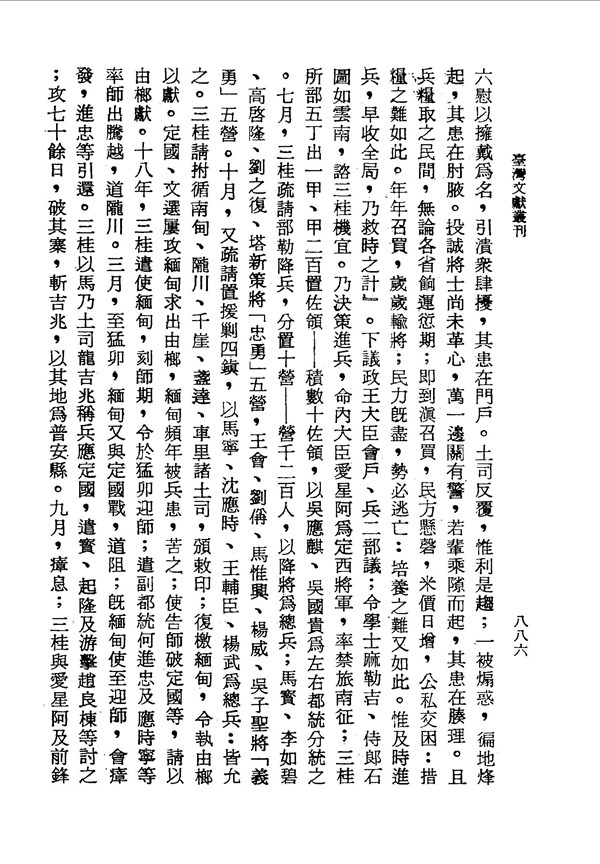 臺灣文獻叢刊
八八六
六慰以擁戴爲名，引潰衆肆擾，其患在門戶。土司反覆，惟利是趨；一被煽惑，徧地烽
起，其患在肘腋。投誠將士尚未革心，萬一邊關有警，若輩乘隙而起，其患在腠理。且
兵糧取之民間，無論各省餉運愆期；即到滇召買，民方懸磬，米價日增，公私交困：措
糧之難如此。年年召買，歲歲輸將；民力旣盡，勢必逃亡：培養之難又如此。惟及時進
兵，早收全局，乃救時之計』。下議政王大臣會戶、兵二部議；令學士麻勒吉、侍郎石
圖如雲南，諮三桂機宜。乃決策進兵，命內大臣愛星阿爲定西將軍，率禁旅南征；三桂
所部五丁出一甲、甲二百置佐領——積數十佐領，以吳應麒、吳國貴爲左右都統分統之
。七月，三桂疏請部勒降兵，分置十營——營千二百人，以降將爲總兵；馬寶、李如碧
、高啓隆、劉之復、塔新策將「忠勇」五營，王會、劉偁、馬惟興、楊威、吳子聖將「義
勇」五營。十月，又疏請置援剿四鎭，以馬寧、沈應時、王輔臣、楊武爲總兵：皆允
之。三桂請拊循南甸、隴川、千崖、盞達、車里諸土司，頒敕印；復檄緬甸，令執由榔
以獻。定國、文選屢攻緬甸求出由榔，緬甸頻年被兵患，苦之；使告師破定國等，請以
由榔獻。十八年，三桂遣使緬甸，刻師期，令於猛卯迎師；遣副都統何進忠及應時寧等
率師出騰越，道隴川。三月，至猛卯，緬甸又與定國戰，道阻；旣緬甸使至迎師，會瘴
發，進忠等引還。三桂以馬乃土司龍吉兆稱兵應定國，遣寶、起隆及游擊趙良棟等討之
；攻七十餘日，破其寨，斬吉兆，以其地爲普安縣。九月，瘴息；三桂與愛星阿及前鋒